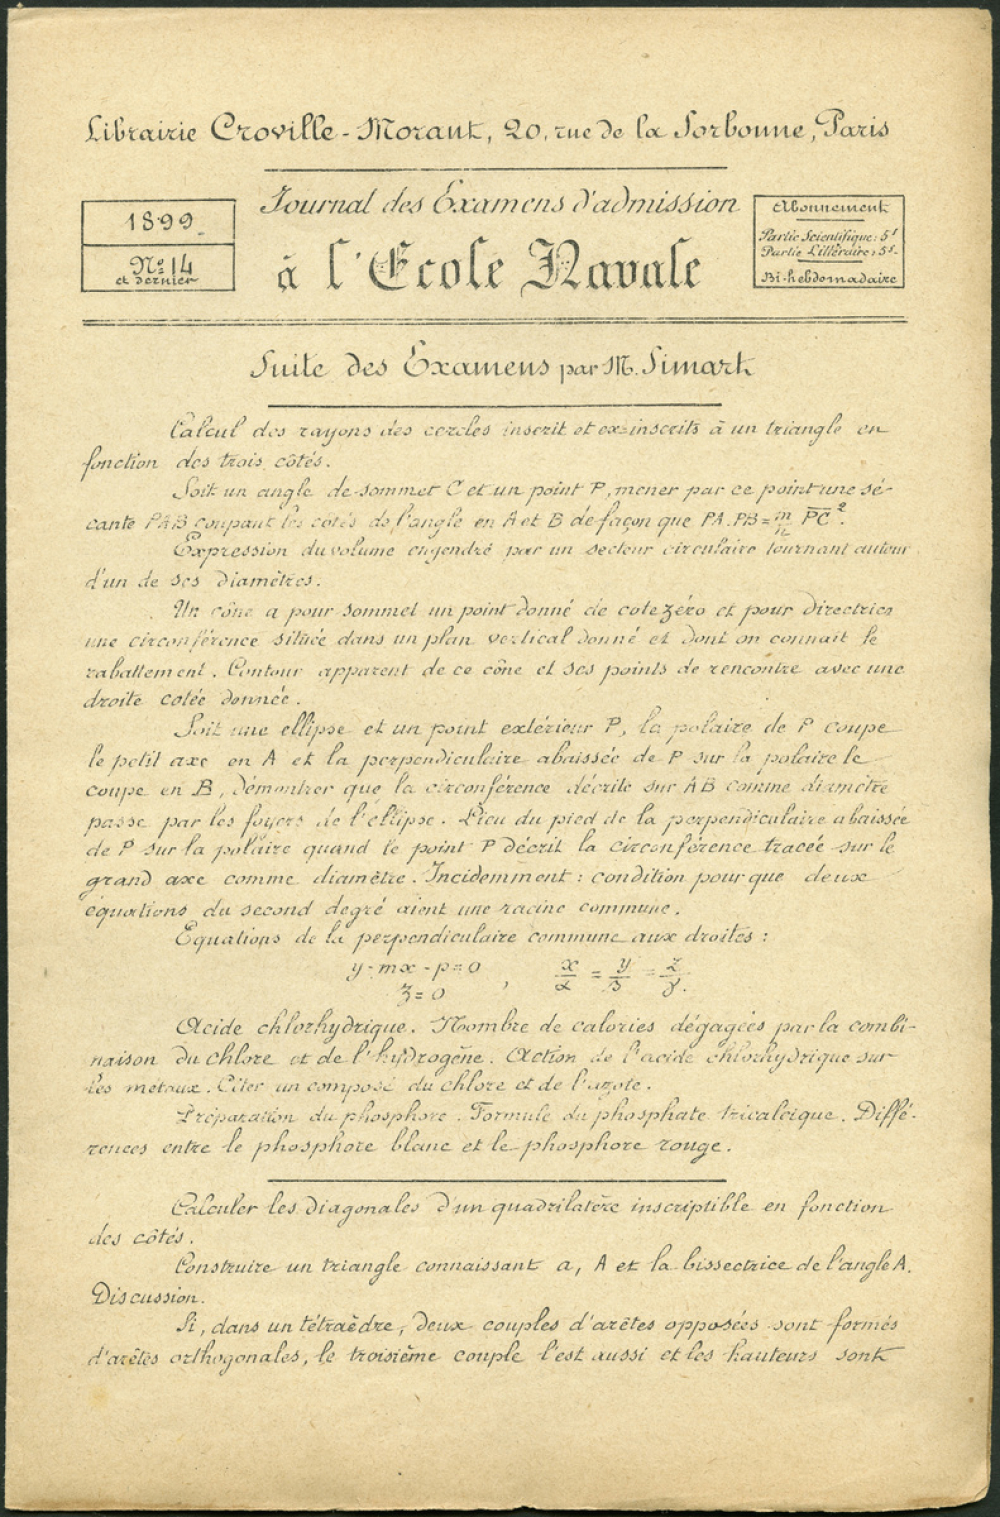 Librairie Croville-Morant, 20, rue de la Sorbonne, Paris
1899
Nº 14
et dernier
Journal des Examens d'admission
à l'École Navale
Abonnement
Partie Scientifique: 5f
Partie Littéraire: 5f.
Bi-hebdomadaire
Suite des Examens par M. Simart
Calcul des rayons des cercles inscrit et ex-inscrits à un triangle en
fonction des trois côtés.
Soit un angle de sommet C et un point P, mener par ce point une sé-
cante PAB coupant les côtés de l'angle en A et B de façon que PA.PB = m/n PC².
Expression du volume engendré par un secteur circulaire tournant autour
d'un de ses diamètres.
Un cône a pour sommet un point donné de cote zéro et pour directrice
une circonférence située dans un plan vertical donné et dont on connait le
rabattement. Contour apparent de ce cône et ses points de rencontre avec une
droite cotée donnée.
Soit une ellipse et un point extérieur P, la polaire de P coupe
le petit axe en A et la perpendiculaire abaissée de P sur la polaire le
coupe en B, démontrer que la circonférence décrite sur AB comme diamètre
passe par les foyers de l'ellipse. Lieu du pied de la perpendiculaire abaissée
de P sur la polaire quand le point P décrit la circonférence tracée sur le
grand axe comme diamètre. Incidemment: condition pour que deux
équations du second degré aient une racine commune.
Equations de la perpendiculaire commune aux droites:
y - mx - p = 0 , x/α = y/β = z/γ.
z = 0
Acide chlorhydrique. Nombre de calories dégagées par la combi-
naison du chlore et de l'hydrogène. Action de l'acide chlorhydrique sur
les métaux. Citer un composé du chlore et de l'azote.
Préparation du phosphore. Formule du phosphate tricalcique. Diffé-
rences entre le phosphore blanc et le phosphore rouge.
Calculer les diagonales d'un quadrilatère inscriptible en fonction
des côtés.
Construire un triangle connaissant a, A et la bissectrice de l'angle A.
Discussion.
Si, dans un tétraèdre, deux couples d'arêtes opposées sont formés
d'arêtes orthogonales, le troisième couple l'est aussi et les hauteurs sont